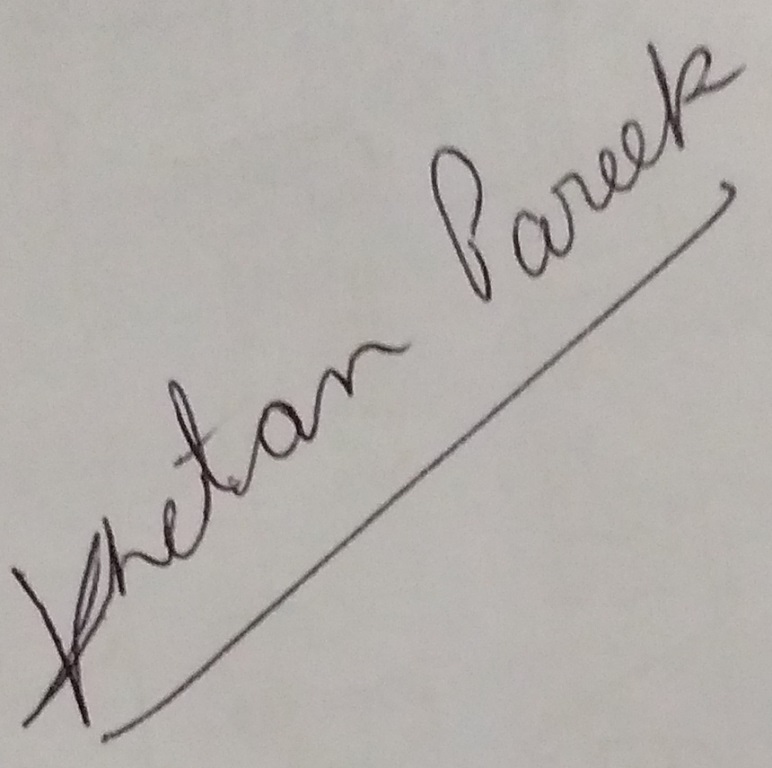 Khetan Pareek